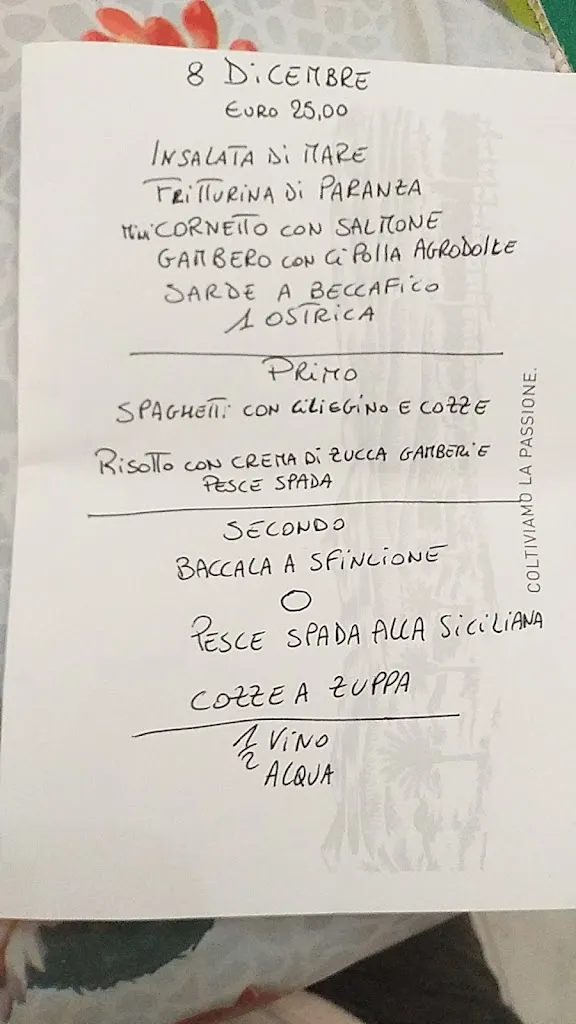 8 DICEMBRE
EURO 25,00
INSALATA DI MARE
FRITTURINA DI PARANZA
MINI CORNETTO CON SALMONE
GAMBERO CON CIPOLLA AGRODOLCE
SARDE A BECCAFICO
1 OSTRICA
PRIMO
SPAGHETTI CON CILIEGINO E COZZE
RISOTTO CON CREMA DI ZUCCA GAMBERI E
PESCE SPADA
SECONDO
BACCALA A SFINCIONE
O
PESCE SPADA ALLA SICILIANA
COZZE A ZUPPA
1/2 VINO
ACQUA
COLTIVIAMO LA PASSIONE.